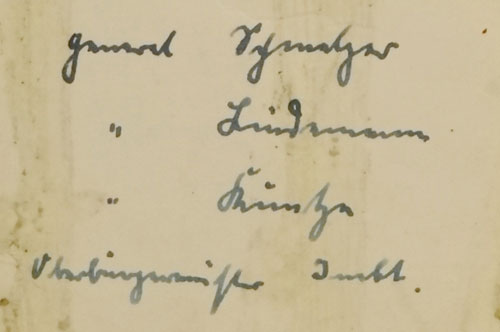 General Schmelzer
" Lindemann
" Kuntze
Oberbürgermeister Imbt